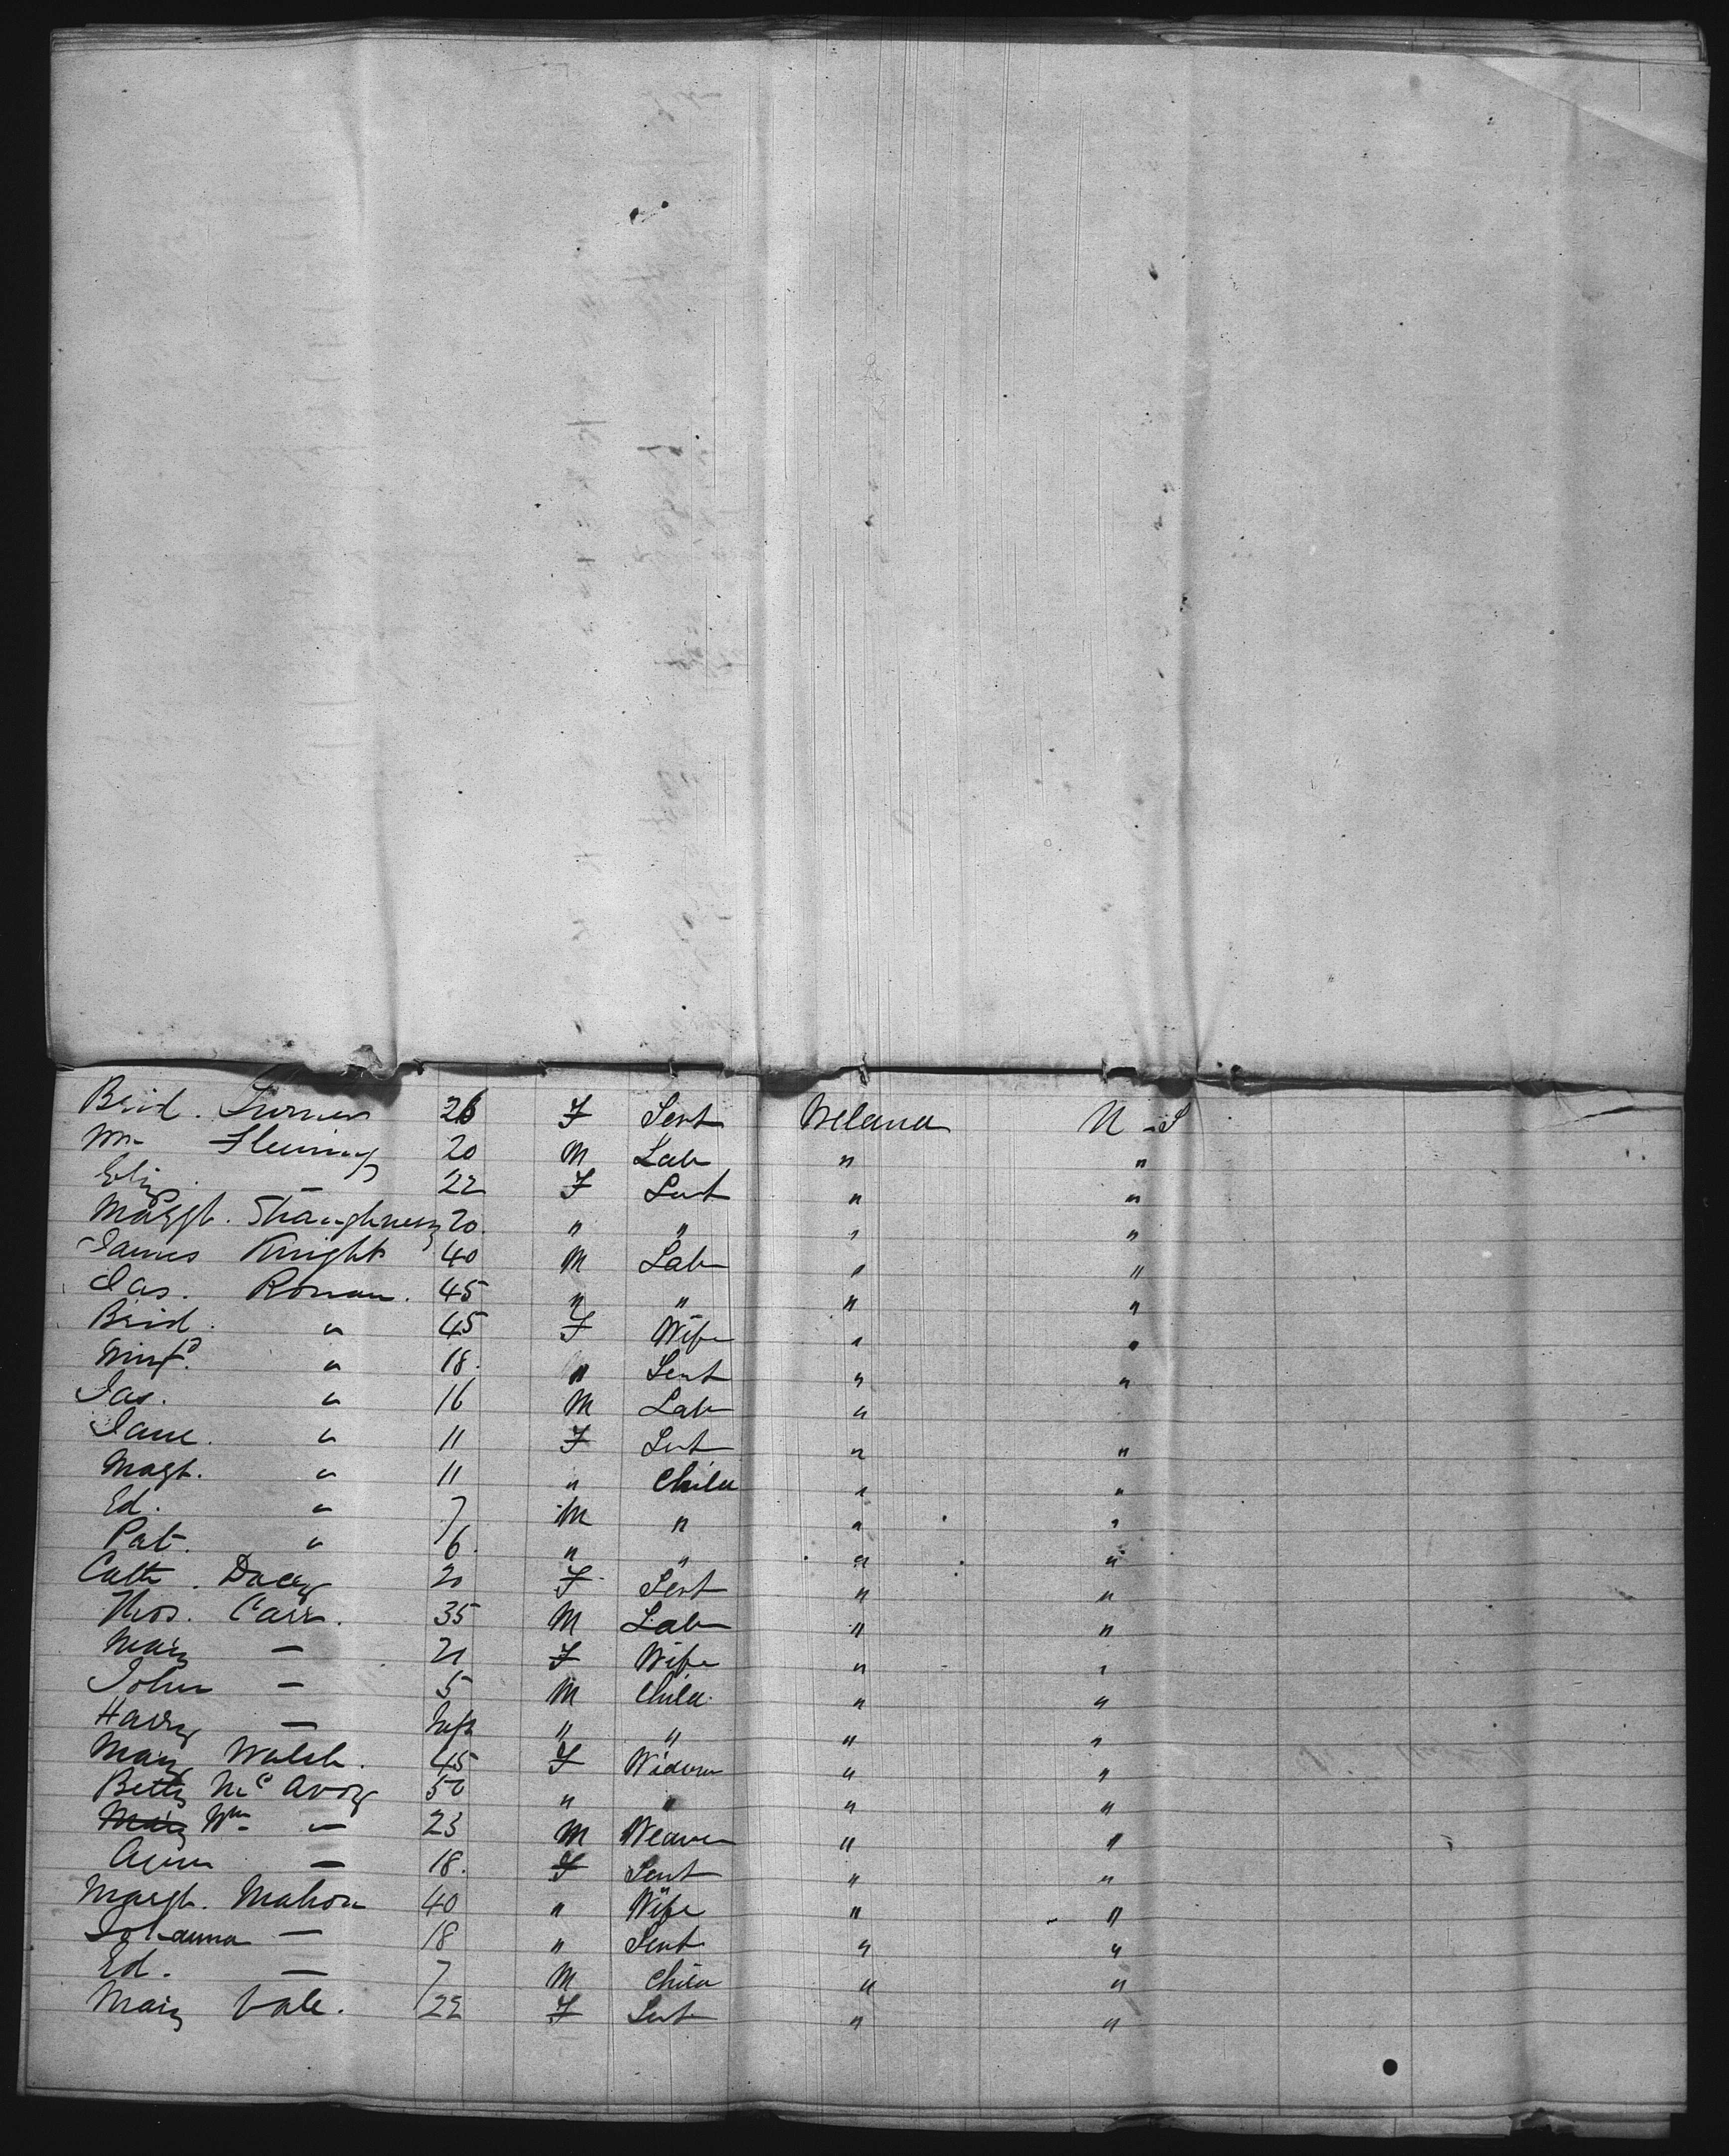 Brid. Turner 26 F Sert Ireland U S
Wm Fleming 20 M Lab " "
Eliz. — 22 F Sert " "
Margt. Shaughnessy 20. " " " "
James Knight 40 M Lab " "
Jas. Ronan. 45 " " " "
Brid. " 45 F Wife " "
Winfd. " 18. " Sert " "
Jas. " 16 M Lab "
Jane. " 11 F Sert " "
Magt. " 11 " Child " "
Ed. " 7 M " " "
Pat. " 6. " " " "
Cath. Dacey 20 F Sert " "
Thos. Carr. 35 M Lab " "
Mary — 21 F Wife " "
John — 5 M Child. " "
Harry — Inft " " " "
Mary Walsh. 45 F Widow " "
Betty McAvoy 50 " " " "
Mary Wm — 23 M Weaver " "
Ann — 18. F Sert " "
Margt. Mahon 40 " Wife " "
Johanna — 18 " Sert " "
Ed. — 7 M Child " "
Mary Vale. 22 F Sert " "